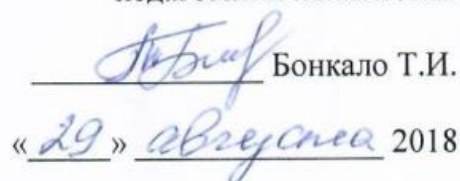 Бонкало Т.И.
« 29 » августа 2018